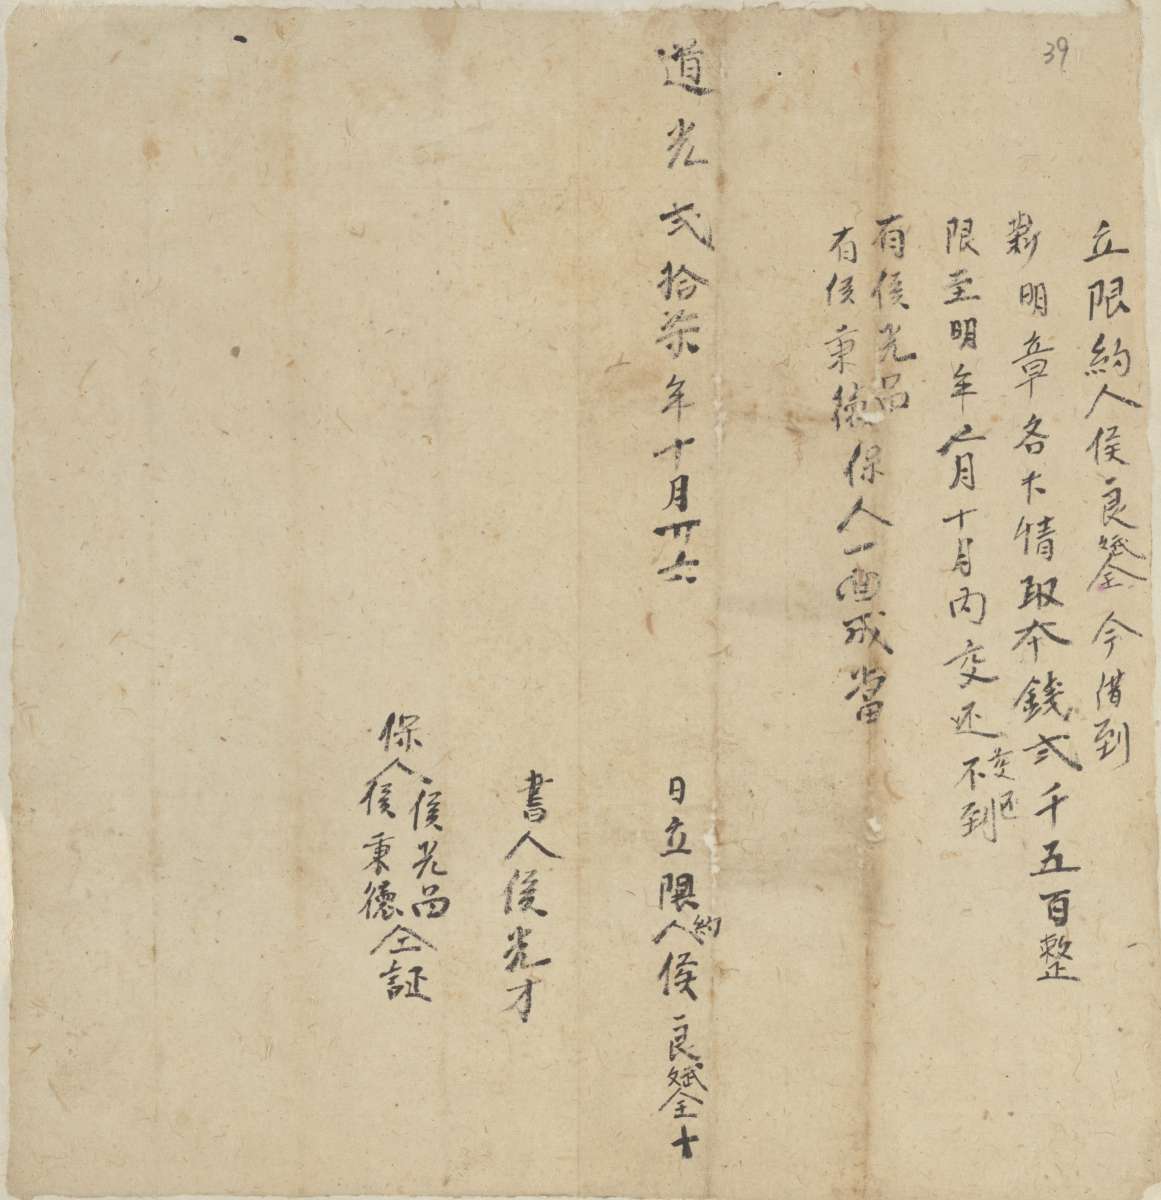 39
立限約人侯良斌仝今借到
明章名下情取本錢弍千五百整
限至明年 月十月內交还不到交还
有侯光昌
有侯秉德保人一面成當
道光弍拾柒年十月廿六日立限約人侯良斌仝十
書人侯光才
保人侯光昌
侯秉德仝証